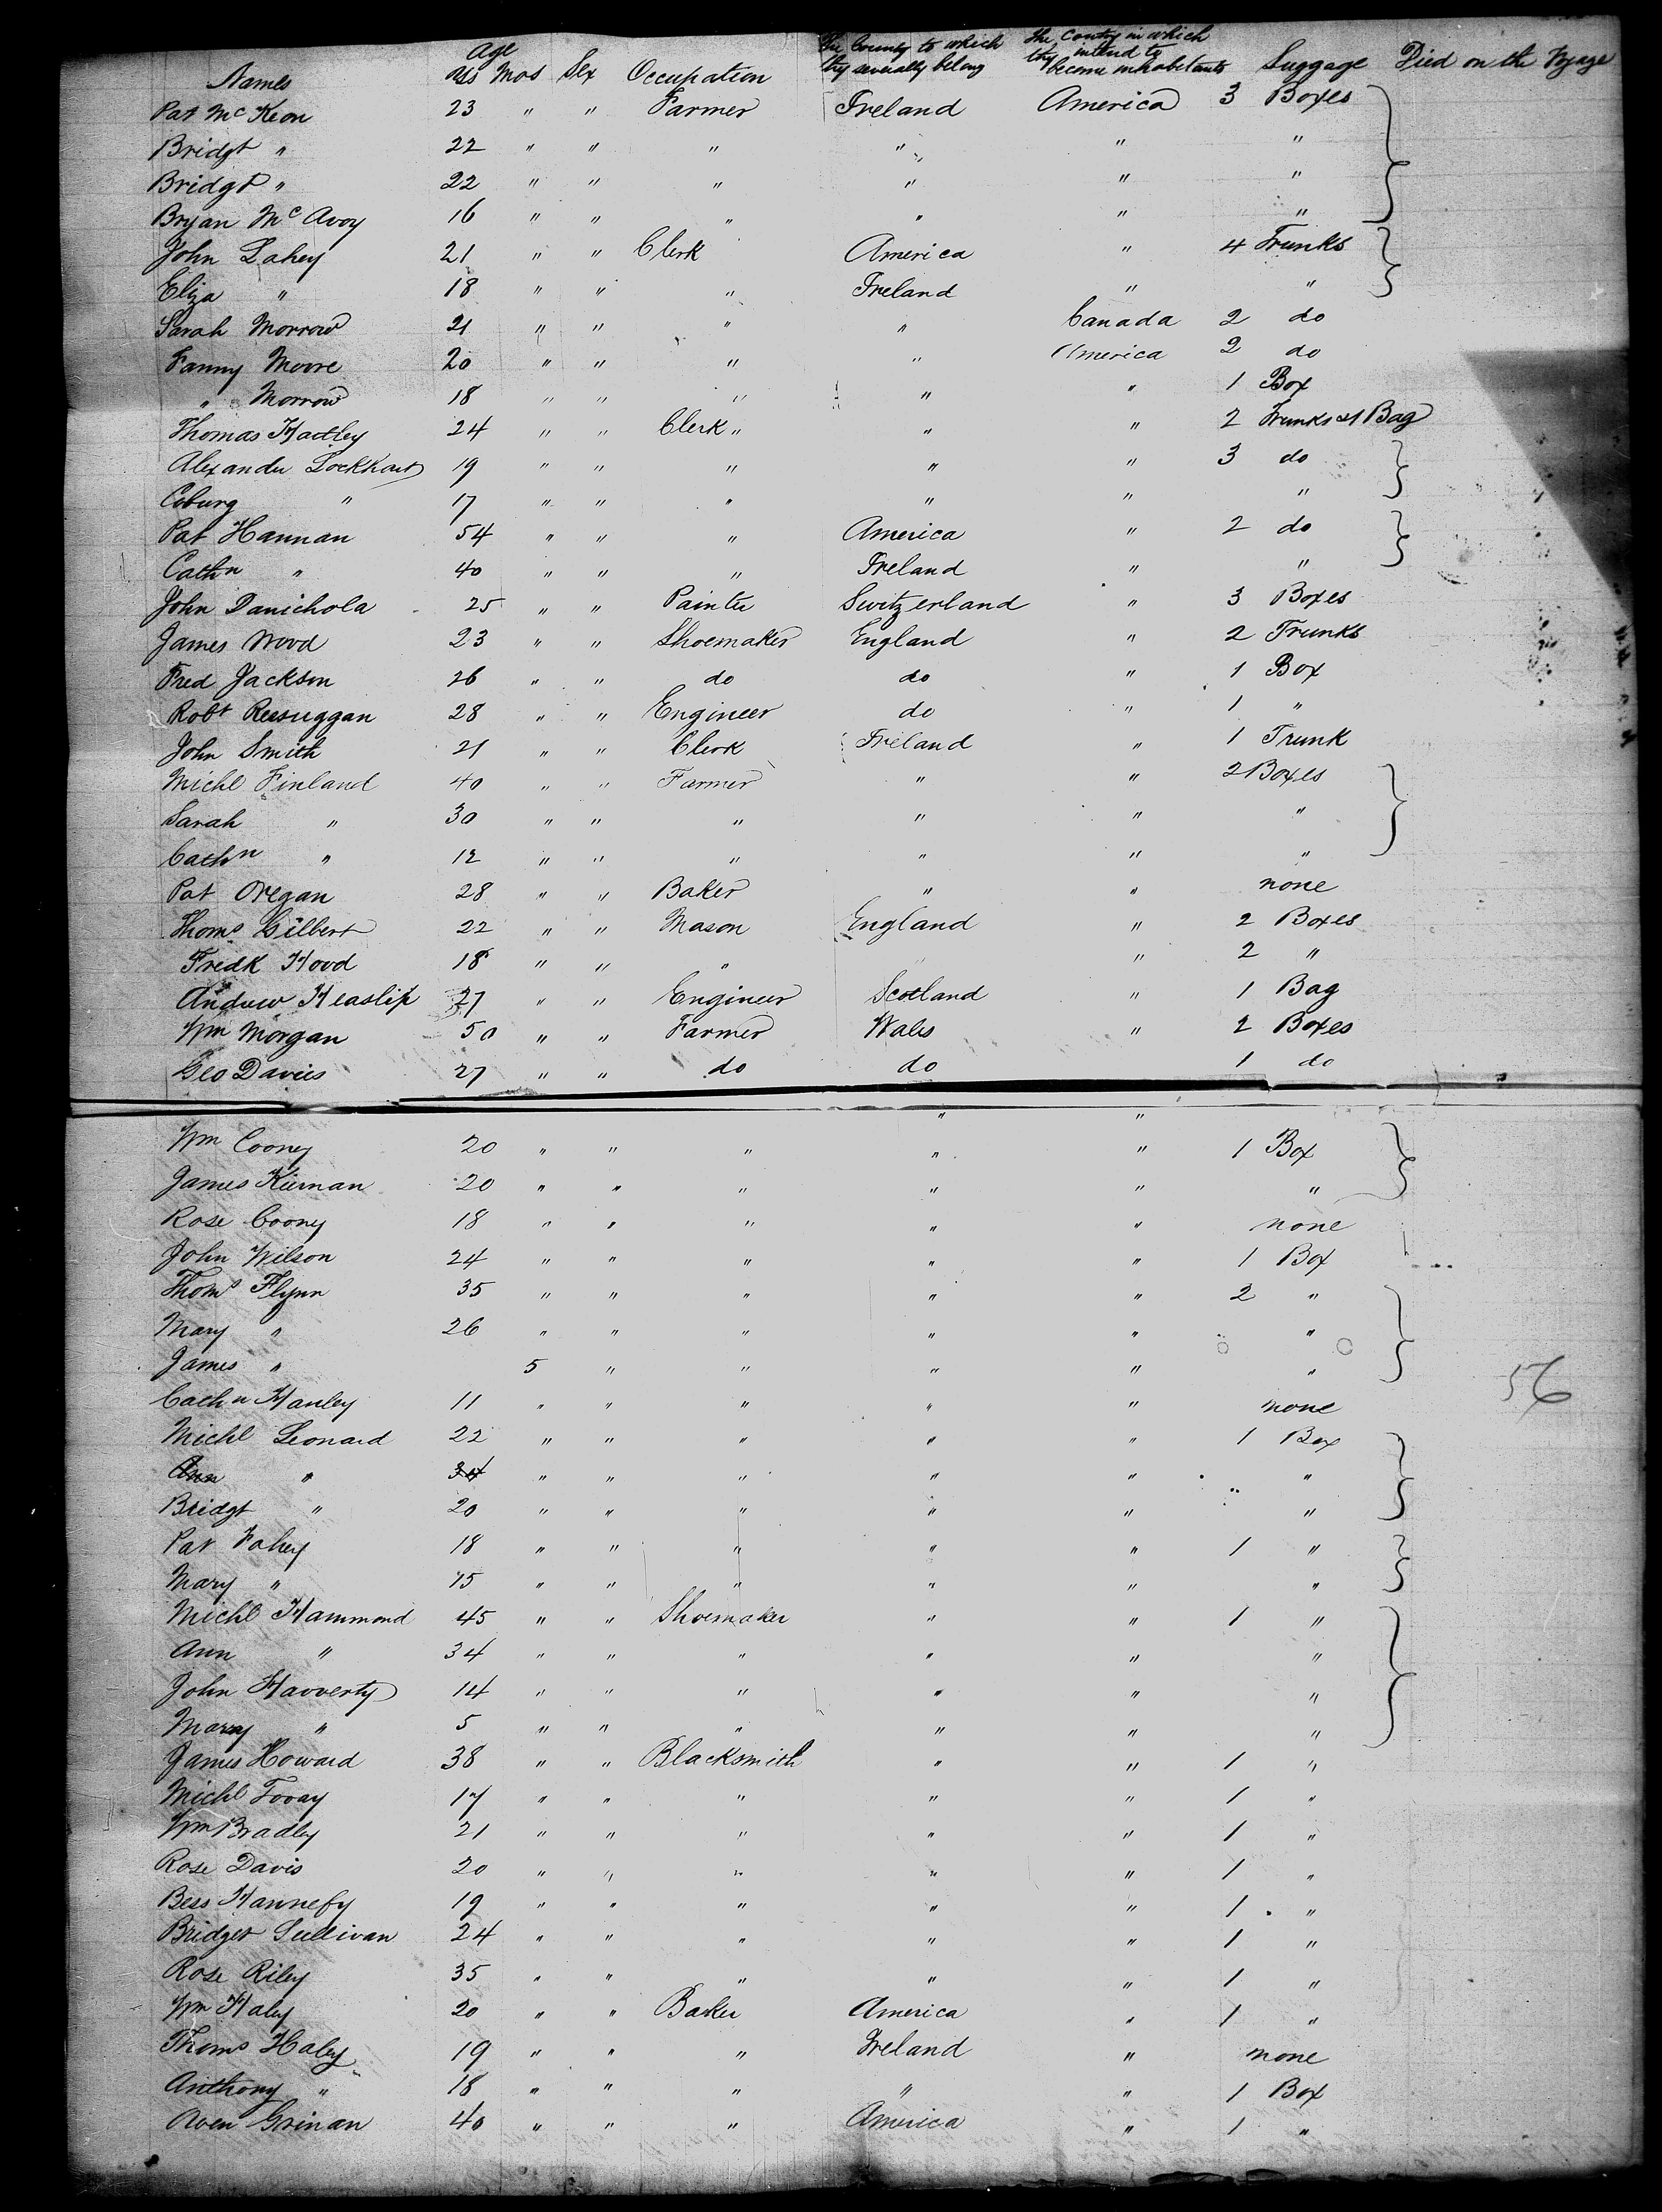 Names Age Yrs Mos Sex Occupation The County to which they severally belong The Contry in which they intend to become inhabitants Luggage Died on the Voyage
Pat McKeon 23 " " Farmer Ireland America 3 Boxes
Bridgt " 22 " " " " " "
Bridgt " 22 " " " " " "
Bryan McAvoy 16 " " " " " "
John Lahey 21 " " Clerk America " 4 Trunks
Eliza " 18 " " " Ireland " "
Sarah Morrow 21 " " " " Canada 2 do
Fanny Moore 20 " " " " America 2 do
" Morrow 18 " " " " " 1 Box
Thomas Hartley 24 " " Clerk " " " 2 Trunks & 1 Bag
Alexander Lockhart 19 " " " " " 3 do
Coburg " 17 " " " " " "
Pat Hannan 54 " " " America " 2 do
Cathn " 40 " " " Ireland " "
John Danichola 25 " " Painter Switzerland " 3 Boxes
James Wood 23 " " Shoemaker England " 2 Trunks
Fred Jackson 26 " " do do " 1 Box
Robt Reesuggan 28 " " Engineer do " 1 "
John Smith 21 " " Clerk Ireland " 1 Trunk
Michl Finland 40 " " Farmer " " 2 Boxes
Sarah " 30 " " " " " "
Cathn " 12 " " " " " "
Pat Oregan 28 " " Baker " " none
Thoms Gilbert 22 " " Mason England " 2 Boxes
Fredk Hood 18 " " " " " 2 "
Andrew Heaslip 27 " " Engineer Scotland " 1 Bag
Wm Morgan 50 " " Farmer Wales " 2 Boxes
Geo Davies 27 " " do do 1 do
" "
Wm Cooney 20 " " " " " 1 Box
James Kiernan 20 " " " " " "
Rose Coony 18 " " " " " none
John Wilson 24 " " " " " 1 Box
Thoms Flynn 35 " " " " " 2 "
Mary " 26 " " " " " "
James " 5 " " " " "
Cathn Hanley 11 " " " " " none
Michl Leonard 22 " " " " " 1 Box
Ann " 34 " " " " " "
Bridgt " 20 " " " " " "
Pat Fahey 18 " " " " " 1 "
Mary " 15 " " " " " "
Michl Hammond 45 " " Shoemaker " " 1 "
Ann " 34 " " " " " "
John Havverty 14 " " " " " "
Mary " 5 " " " " " "
James Howard 38 " " Blacksmith " " 1 "
Michl Tovay 17 " " " " " 1 "
Wm Bradly 21 " " " " " 1 "
Rose Davis 20 " " " " " 1 "
Bess Hannefy 19 " " " " " 1 "
Bridget Sullivan 24 " " " " " 1 "
Rose Riley 35 " " " " " 1 "
Wm Haley 20 " " Baker America " 1 "
Thoms Haley 19 " " " Ireland " none
Anthony " 18 " " " " " 1 Box
Owen Grinan 40 " " " America " 1 "
56